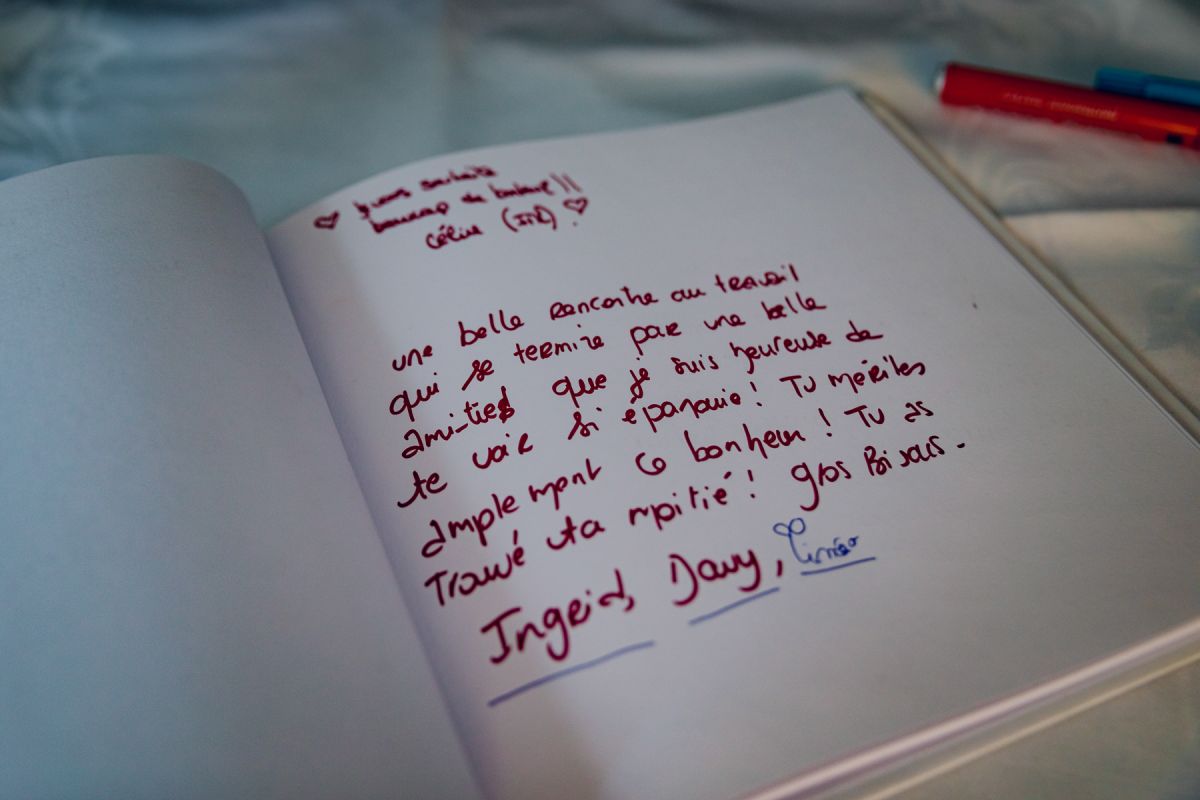 Je vous souhaite
beaucoup de bonheur !!
Céline
une belle rencontre au travail
qui se termine par une belle
amitié que je suis heureuse de
te voir si épanouie ! Tu mérites
amplement ce bonheur ! Tu as
Trouvé ta moitié ! Gros Bisous.
Ingrid, Davy,